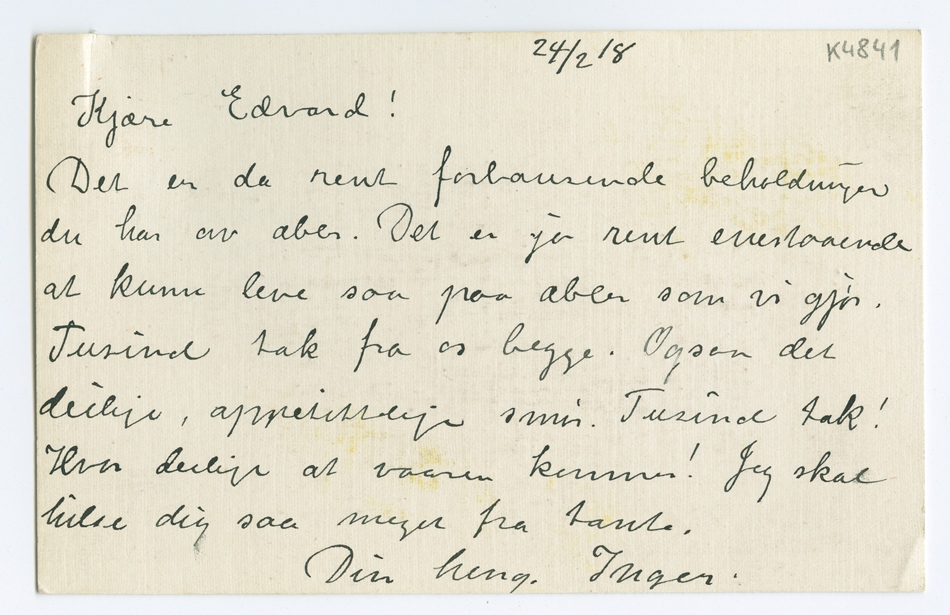 24/2 18
K4841
Kjære Edvard!
Det er da rent forbausende beholdninger
du har av æbler. Det er jo rent enestaaende
at kunne leve saa paa æbler som vi gjør.
Tusind tak fra os begge. Ogsaa det
deilige, appetittlige smør. Tusind tak!
Hvor deilige at vaaren kommer! Jeg skal
hilse dig saa meget fra tante.
Din heng. Inger.